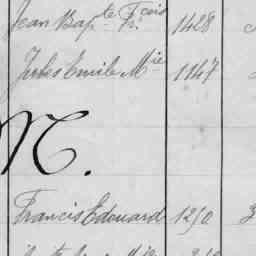 Jean Bapte Fcois 1428
Jules Emile Mie 1147
N.
Francis Edouard 1250 3